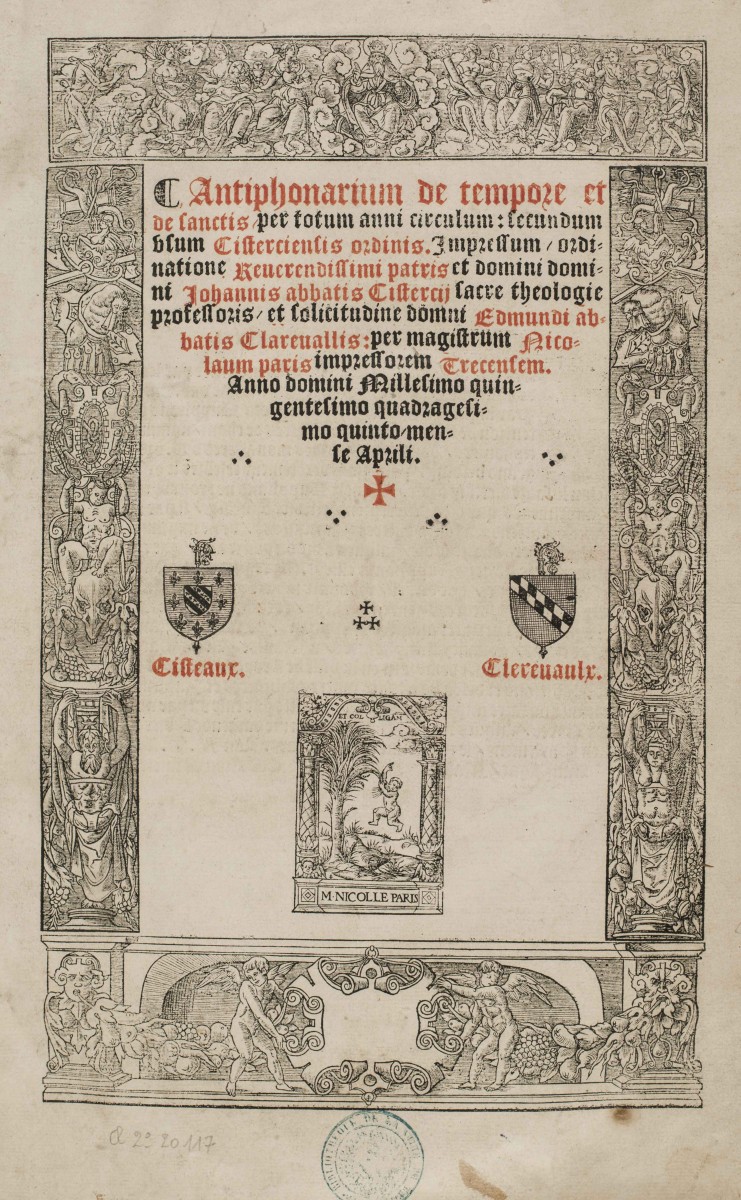 ¶ Antiphonarium de tempore et
de sanctis / per totum anni circulum: secundum
vsum Cisterciensis ordinis. Impressum / ordi-
natione Reuerendissimi patris et domini domi-
ni Johannis abbatis Cistercij sacre theologie
professoris / et solicitudine domni Edmundi ab-
batis Clareuallis: per magistrum Nico-
laum paris impressorem Trecensem.
Anno domini Millesimo quin-
gentesimo quadragesi-
mo quinto / men-
se Aprili.
Cisteaux.
Clereuaulx.
ET COL LIGAM
M·NICOLLE PARIS
2° 20 117
BIBLIOTHEQUE DE LA